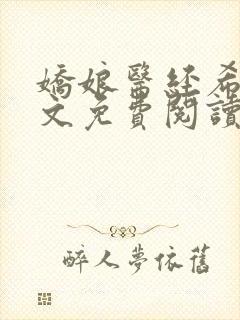 嬌娘醫經希
文免費閱讀
醉人夢依舊